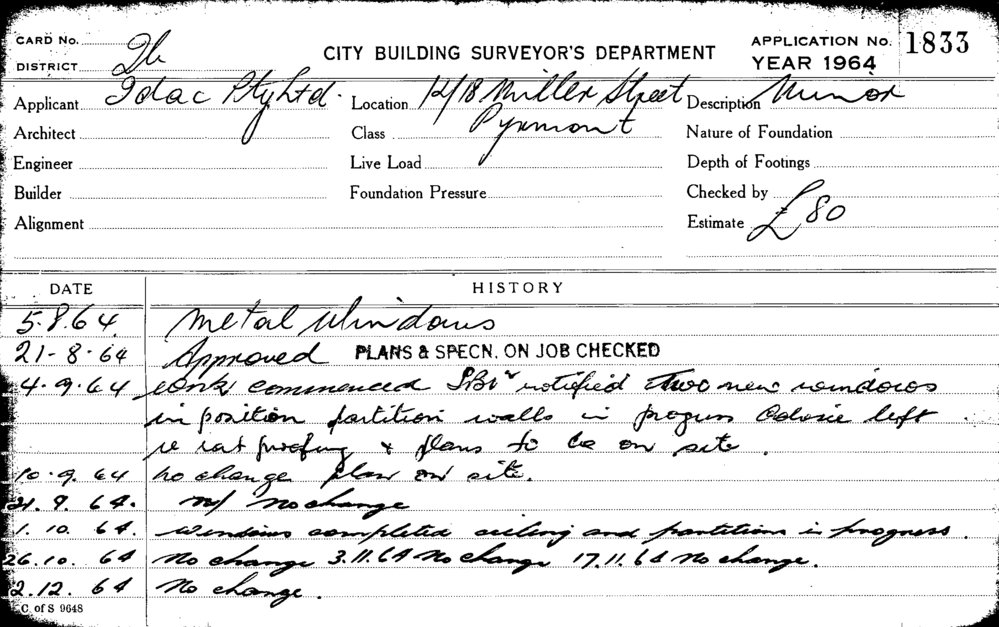 CARD No.
DISTRICT
CITY BUILDING SURVEYOR'S DEPARTMENT
APPLICATION No. 1833
YEAR 1964
Applicant Idac Pty Ltd. Location 12/18 Miller Street Description Minor
Architect Class Pyrmont Nature of Foundation
Engineer Live Load Depth of Footings
Builder Foundation Pressure Checked by
Alignment Estimate £80
DATE HISTORY
5.8.64 Metal Windows
21-8-64 Approved PLANS & SPECN. ON JOB CHECKED
4.9.64 work commenced notified two new windows
in position partition walls in progress left
re rat proofing & plans to be on site.
10.9.64 no change plan on site.
21.9.64. no change
1.10.64. windows completed ceiling and partitions in progress.
26.10.64 No change 3.11.64 No change 17.11.64 No change.
2.12.64 No change.
C. of S 9648